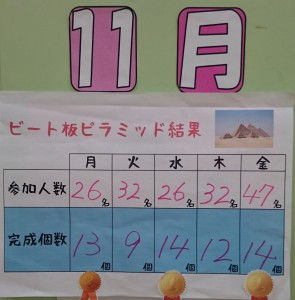 11月
ビート板ピラミッド結果
月 火 水 木 金
参加人数 26名 32名 26名 32名 47名
完成個数 13個 9個 14個 12個 14個